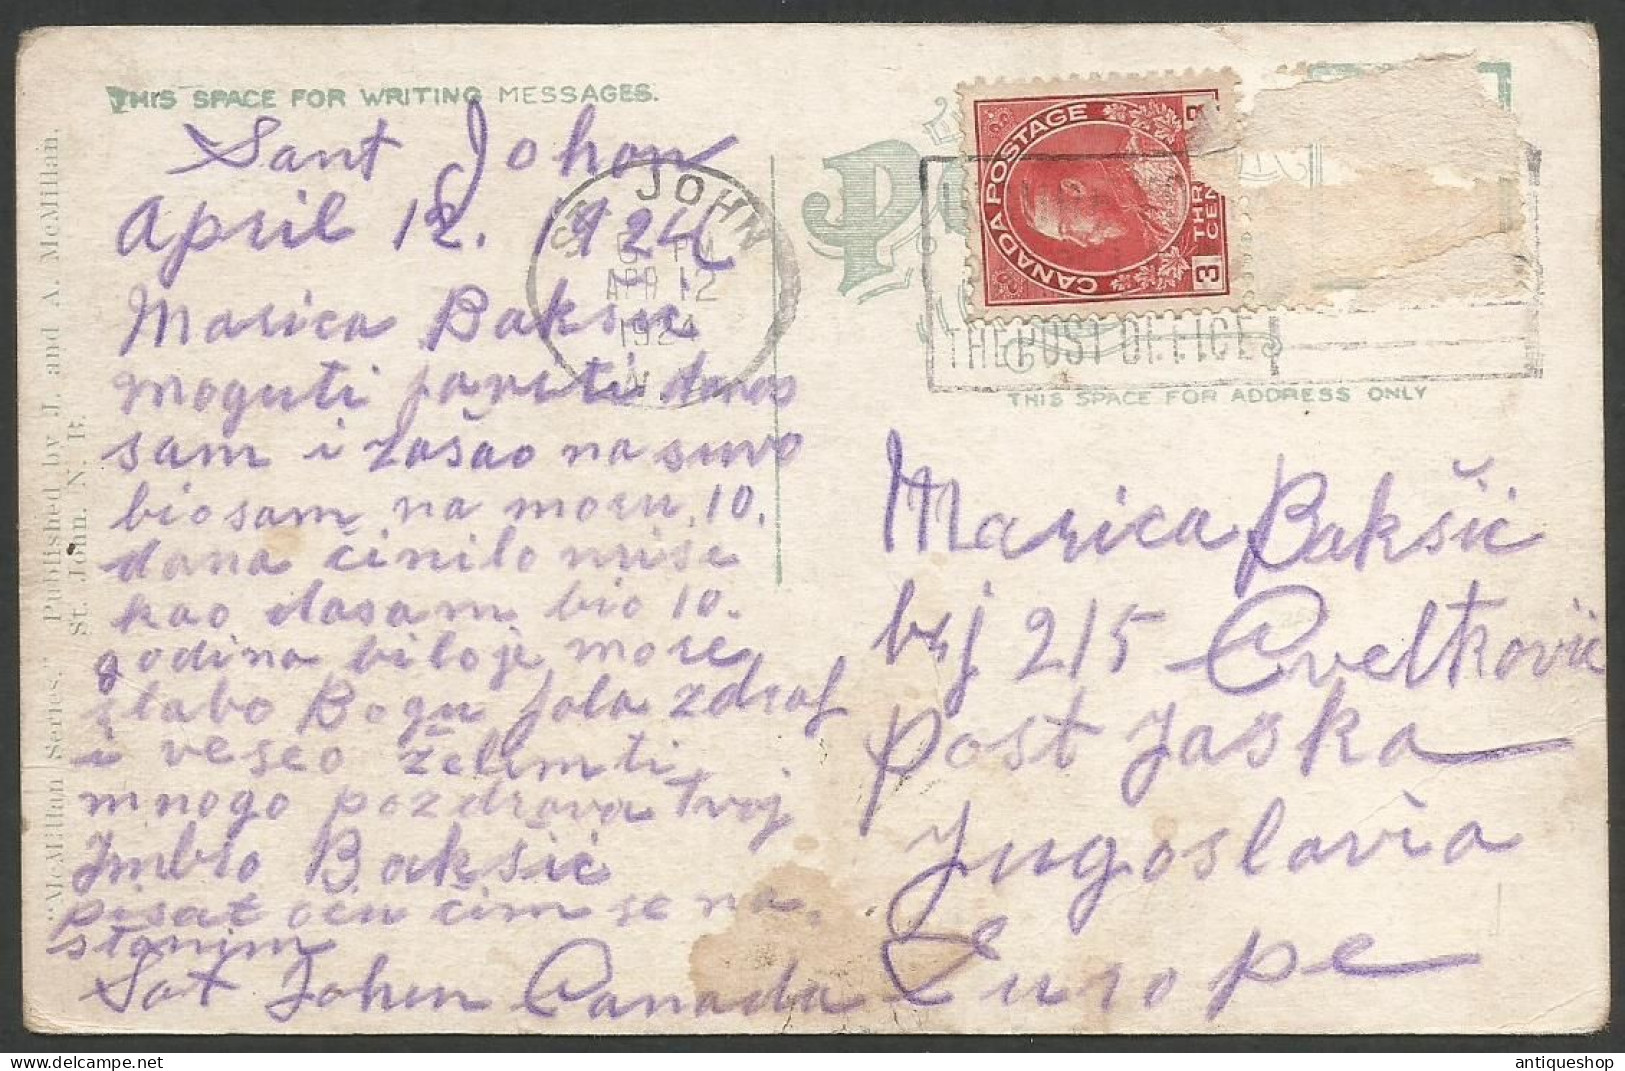 THIS SPACE FOR WRITING MESSAGES.
Sant Johon
April 12. 1924
Marica Baksić
moguti javiti danas
sam i zašao na suvo
bio sam na moru 10.
dana činilo mise
kao dasam bio 10.
godina bilo je more
slabo Bogu fala zdraf
i veseo želimti
mnogo pozdrava tvoj
Imbro Baksić
pisat ocu čim se na
stanim
Sat Johen Canada
"McMillan Series." Published by J. and A. McMillan.
St. John. N. B.
ST. JOHN
PM
APR 12
1924
N
CANADA POSTAGE
3
THREE
CENTS
THE POST OFFICE
THIS SPACE FOR ADDRESS ONLY
Marica Bakšić
brj 215 Cvetković
Post Jaska
Jugoslavia
Europe
antiqueshop